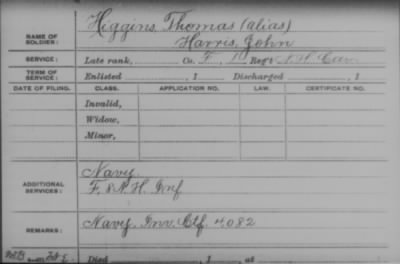 NAME OF SOLDIER: Higgins, Thomas (alias)
Harris, John
SERVICE: Late rank, Co. F, 1 Reg't N.H. Cav
TERM OF SERVICE: Enlisted , 1 Discharged , 1
DATE OF FILING. CLASS. APPLICATION NO. LAW. CERTIFICATE NO.
Invalid,
Widow,
Minor,
ADDITIONAL SERVICES: Navy
F. N.H. Inf
REMARKS: Navy. Inv. Ctf. 4,082
Died , 1 , at